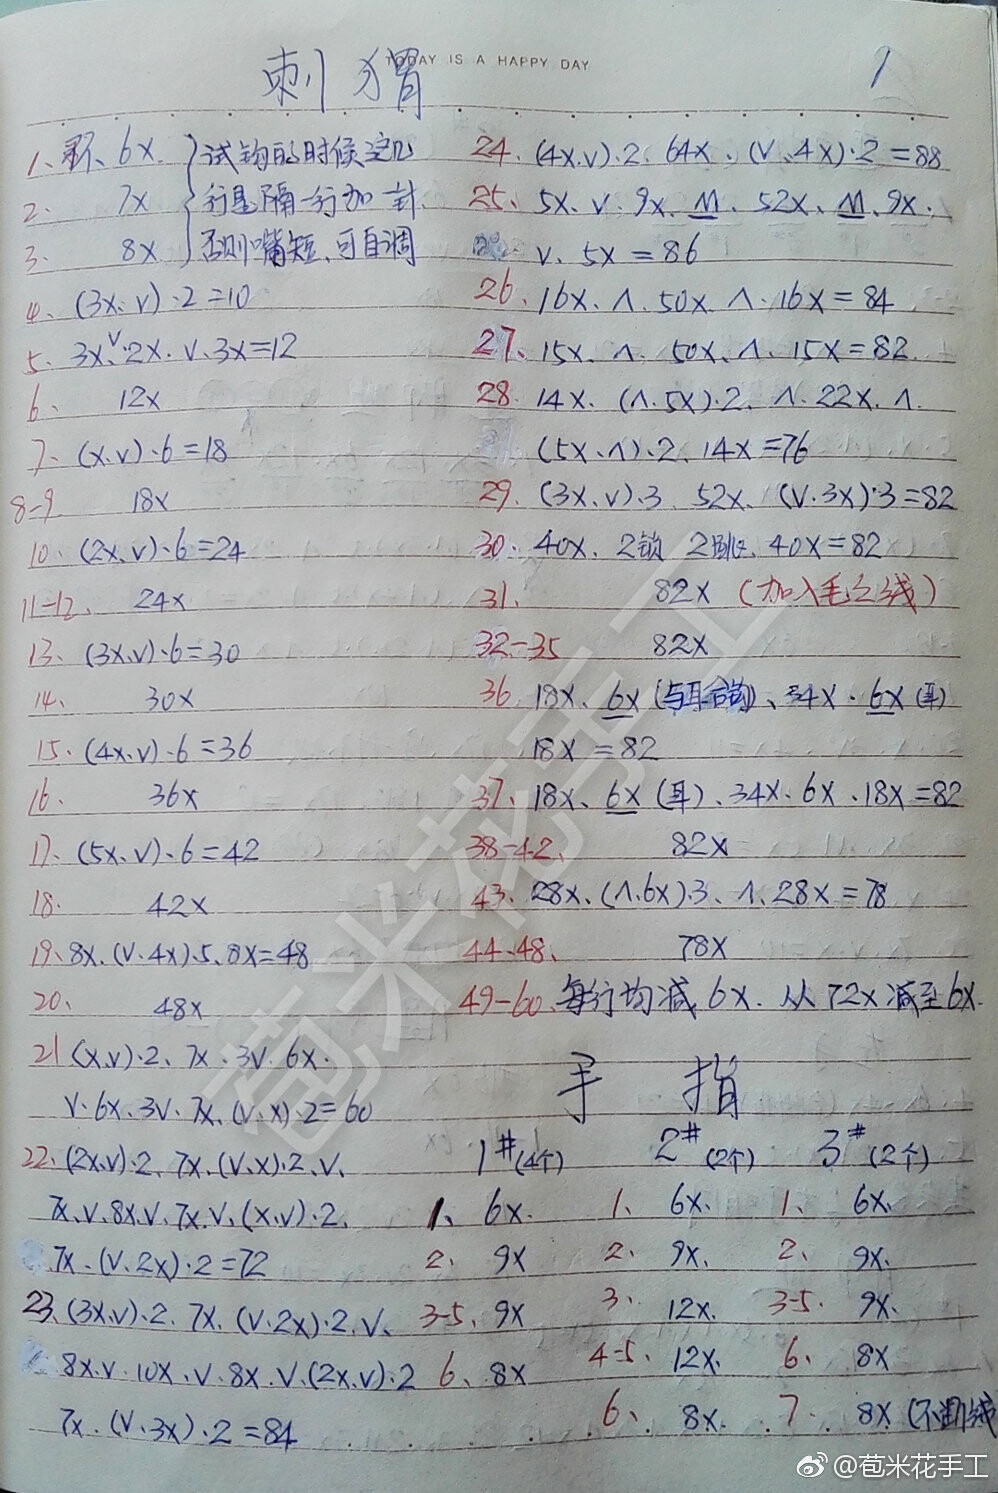 TODAY IS A HAPPY DAY
刺猬
1
1、环、6x
2. 7x
3. 8x
试钩的时候这几
行是隔一行加一针
否则嘴短、可自调
4、(3x、v)·2=10
5、3x、v·2x、v、3x=12
6、12x
7、(x.v)·6=18
8-9 18x
10、(2x、v)·6=24
11-12、24x
13、(3x.v)·6=30
14、30x
15·(4x、v)·6=36
16、36x
17、(5x、v)·6=42
18. 42x
19、8x、(v·4x)·5、8x=48
20、48x
21(x,v)·2、7x·3v·6x·
v·6x·3v·7x、(v·x)·2=60
22、(2x,v)·2、7x、(v,x)·2、v、
7x、v、8x、v、7x、v、(x,v)·2、
7x、(v、2x)·2=72
23、(3x,v)·2、7x、(v·2x)·2、v、
8x、v·10x、v·8x、v、(2x,v)·2
7x·(v·3x)·2=84
24、(4x.v)·2、64x、(v、4x)·2=88
25、5x、v·9x、M、52x、M、9x·
v、5x=86
26、16x、Λ、50x、Λ·16x=84
27、15x、Λ、50x、Λ、15x=82
28、14x、(Λ·5x)·2、Λ·22x、Λ.
(5x、Λ)·2、14x=76
29、(3x、v)·3、52x、(v·3x)·3=82
30·40x、2锁 2跳、40x=82
31、82x (加入毛毛线)
32-35 82x
36 18x、6x(与耳合钩)、34x·6x(耳)
18x=82
37、18x、6x(耳)、34x·6x·18x=82
38-42、82x
43、28x、(Λ·6x)·3、Λ、28x=78
44-48、78x
49-60、每行均减6x、从72x减至6x
手指
1#(4个)
1、6x.
2、9x
3-5、9x
6、8x
2#(2个)
1、6x.
2、9x、
3、12x.
4-5、12x.
6、8x.
3#(2个)
1、6x.
2、9x.
3-5、9x.
6、8x
7、8x(不断线
苞米花手工
@苞米花手工